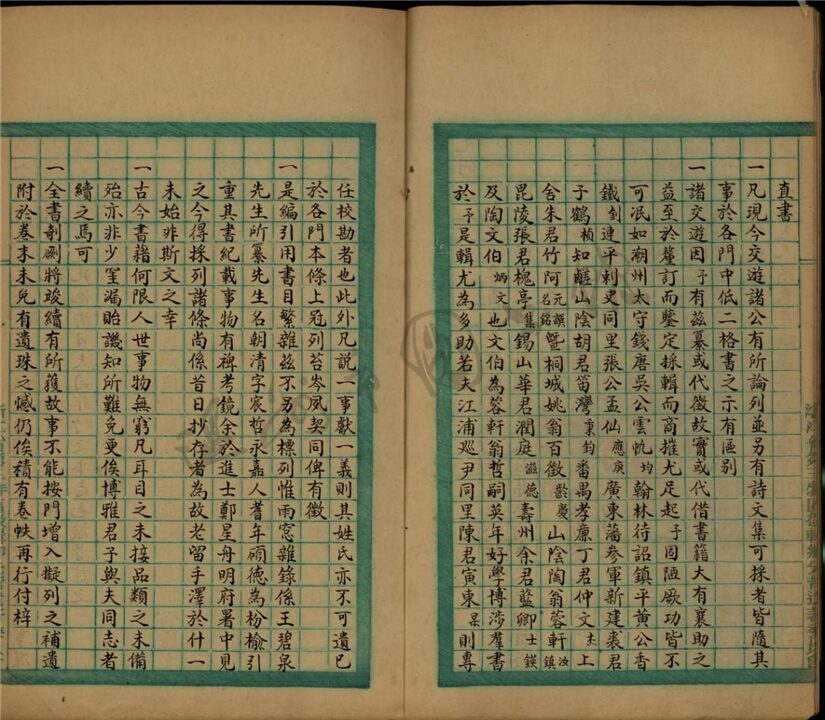 直書
一凡現今交遊諸公有所論列並另有詩文集可採者皆隨其
事於各門中低二格書之示有區別
一諸交遊因予有茲纂或代徵故實或代借書籍大有襄助之
益至於釐訂而鑒定採輯而商搉尤足起予固陋厥功皆不
可泯如潮州太守錢唐吳公雲帆均翰林待詔鎮平黃公香
鐵釗連平刺史同里張公孟仙應庚廣東藩參軍新建裘君
子鶴楨知鹺山陰胡君笛灣秉鈞番禺孝廉丁君仲文杰上
舍朱君竹阿元譔名銘暨桐城姚翁百徵齡慶山陰陶翁蓉軒汝鎮
毘陵張君槐亭集錫山華君潤庭滋德壽州余君藍卿士鍈
及陶文伯炳文也文伯為蓉軒翁哲嗣英年好學博涉羣書
於予是輯尤為多助若夫江浦廵尹同里陳君寅東杲則專
任校勘者也此外凡說一事獻一義則其姓氏亦不可遺已
於各門本條上冠列苔岑夙契同俾有徵
一是編引用書目繁雜茲不另為標列惟雨窓雜錄係王碧泉
先生所纂先生名朝清字宸哲永嘉人耆年碩德為枌榆引
重其書紀載事物有裨考鏡余於進士鄭星舟明府署中見
之今得採列諸條尚係昔日抄存者為故老留手澤於什一
未始非斯文之幸
一古今書籍何限人世事物無窮凡耳目之未接品類之未備
殆亦非少罣漏貽譏知所難免更俟博雅君子與夫同志者
續之焉可
一全書剞劂將竣續有所獲故事不能按門增入擬列之補遺
附於卷末未免有遺珠之憾仍俟積有卷帙再行付梓